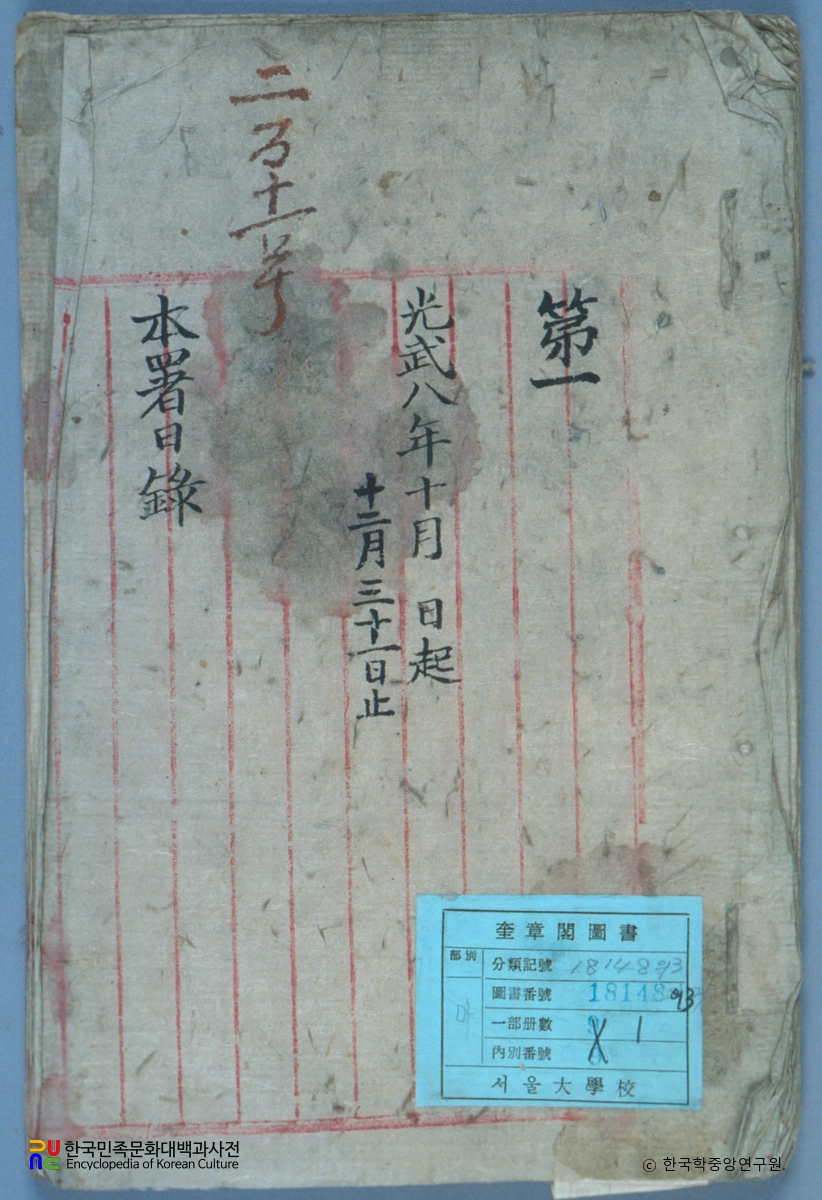 二万十一号
第一
光武八年十月 日起
十二月三十一日止
本署日錄
奎章閣圖書
部別
分類記號 18148
圖書番號 18148
一部册數 1
內別番號
서울大學校
한국민족문화대백과사전
Encyclopedia of Korean Culture
© 한국학중앙연구원.